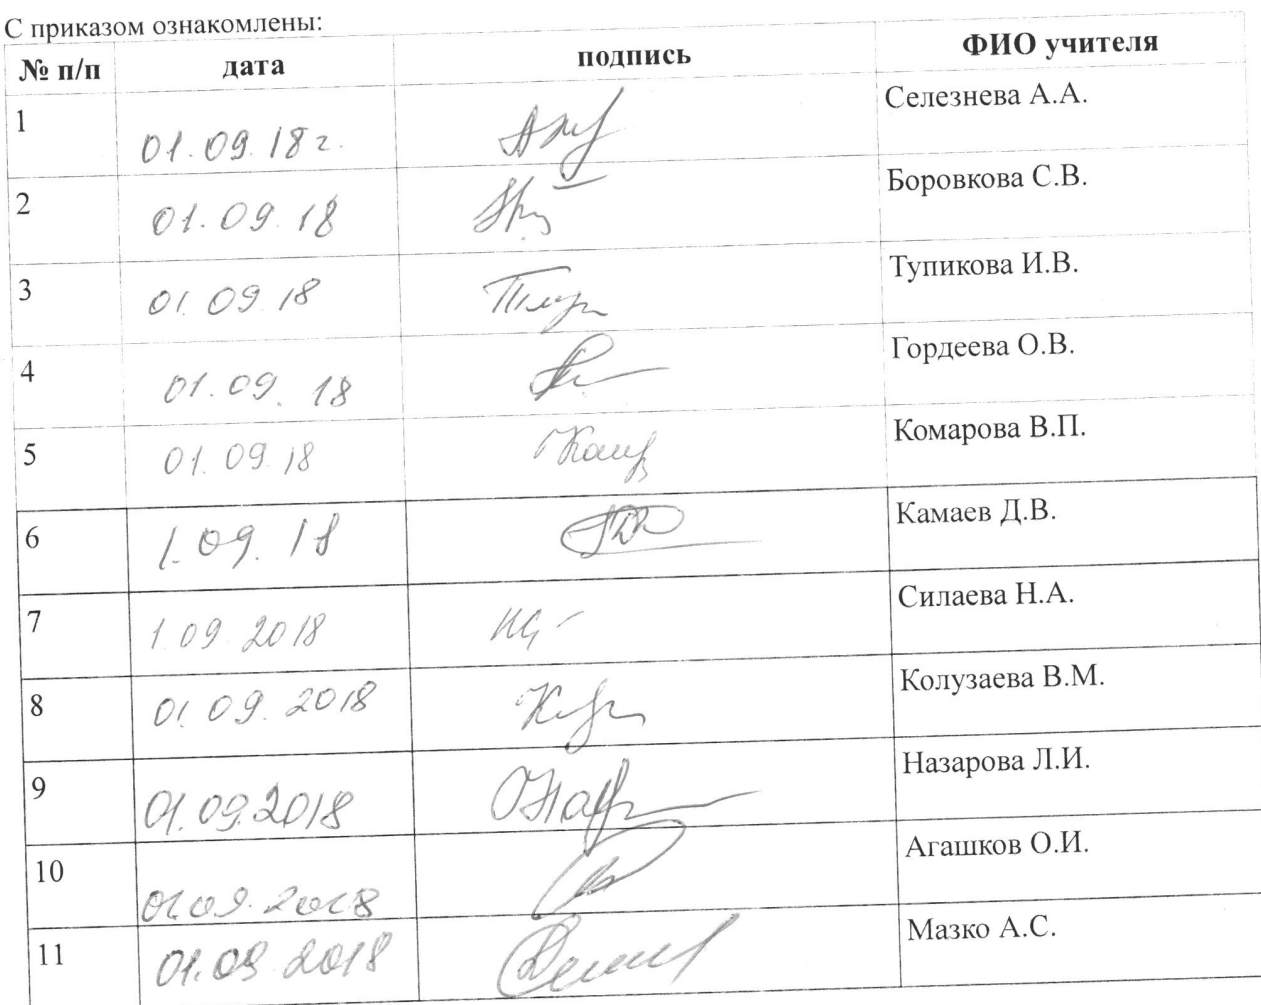 С приказом ознакомлены:
№ п/п дата подпись ФИО учителя
1 01.09.18г. Селезнева А.А.
2 01.09.18 Боровкова С.В.
3 01.09.18 Тупикова И.В.
4 01.09.18 Гордеева О.В.
5 01.09.18 Комарова В.П.
6 1.09.18 Камаев Д.В.
7 1.09.2018 Силаева Н.А.
8 01.09.2018 Колузаева В.М.
9 01.09.2018 Назарова Л.И.
10 01.09.2018 Агашков О.И.
11 01.09.2018 Мазко А.С.